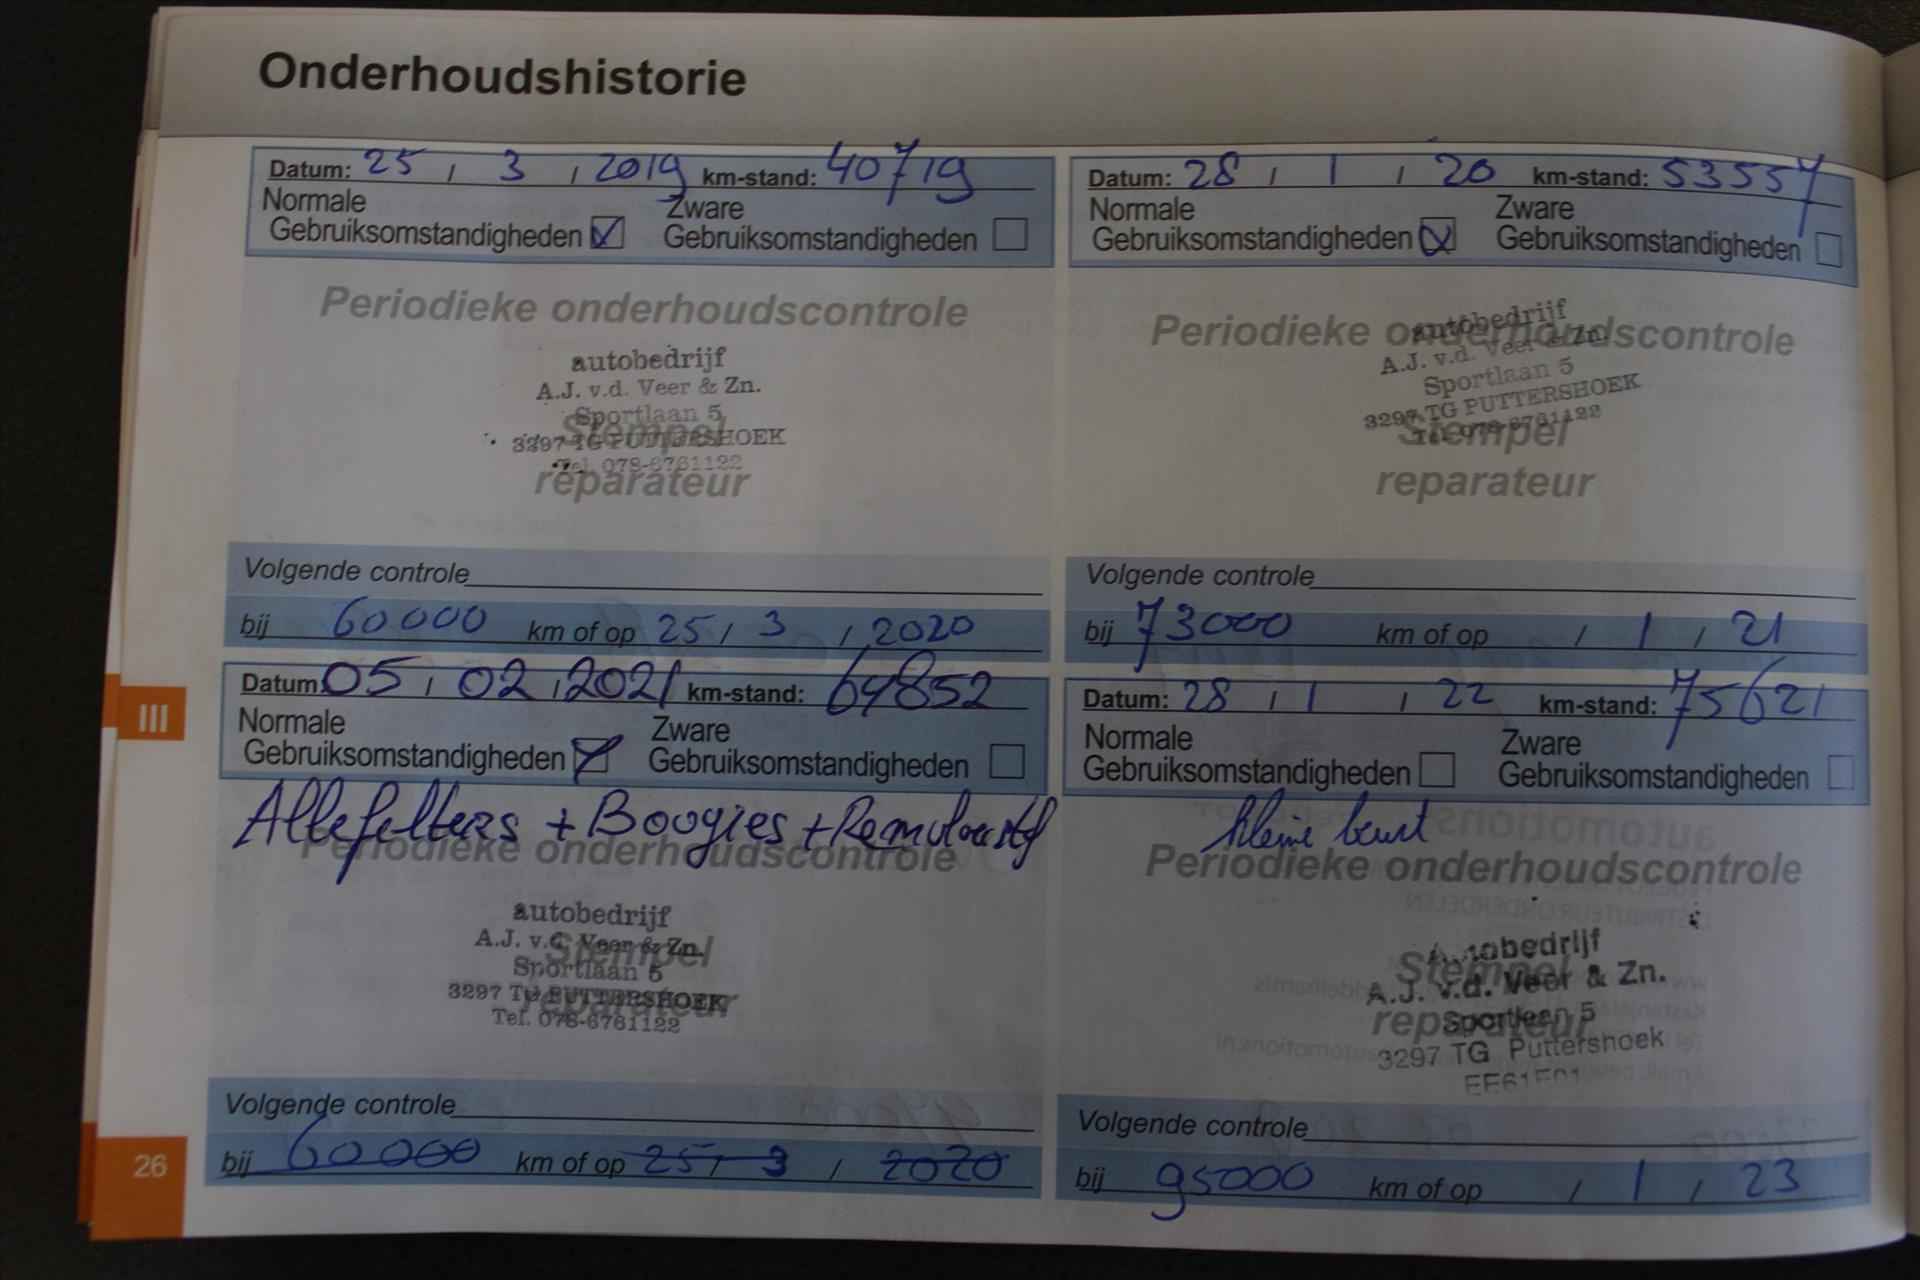 Onderhoudshistorie
Datum: 25 / 3 / 2019 km-stand: 40719
Normale Zware
Gebruiksomstandigheden Gebruiksomstandigheden
Periodieke onderhoudscontrole
autobedrijf
A.J. v.d. Veer & Zn.
Sportlaan 5
Stempel
3297 TG PUTTERSHOEK
Tel. 078-6761122
reparateur
Volgende controle
bij 60000 km of op 25 / 3 / 2020
Datum: 28 / 1 / 20 km-stand: 53557
Normale Zware
Gebruiksomstandigheden Gebruiksomstandigheden
Periodieke onderhoudscontrole
autobedrijf
A.J. v.d. Veer & Zn.
Sportlaan 5
3297 TG PUTTERSHOEK
Tel. 078-6761122
Stempel
reparateur
Volgende controle
bij 73000 km of op / 1 / 21
Datum: 05 / 02 / 2021 km-stand: 64852
Normale Zware
Gebruiksomstandigheden Gebruiksomstandigheden
Alle filters + Boogies +
Periodieke onderhoudscontrole
autobedrijf
A.J. v.d. Veer & Zn.
Stempel
Sportlaan 5
3297 TG PUTTERSHOEK
reparateur
Tel. 078-6761122
Volgende controle
bij 60000 km of op 25 / 3 / 2020
Datum: 28 / 1 / 22 km-stand: 75621
Normale Zware
Gebruiksomstandigheden Gebruiksomstandigheden
kleine beurt
Periodieke onderhoudscontrole
Autobedrijf
Stempel
A.J. v.d. Veer & Zn.
reparateur
Sportlaan 5
3297 TG Puttershoek
Volgende controle
bij 95000 km of op / 1 / 23
III
26